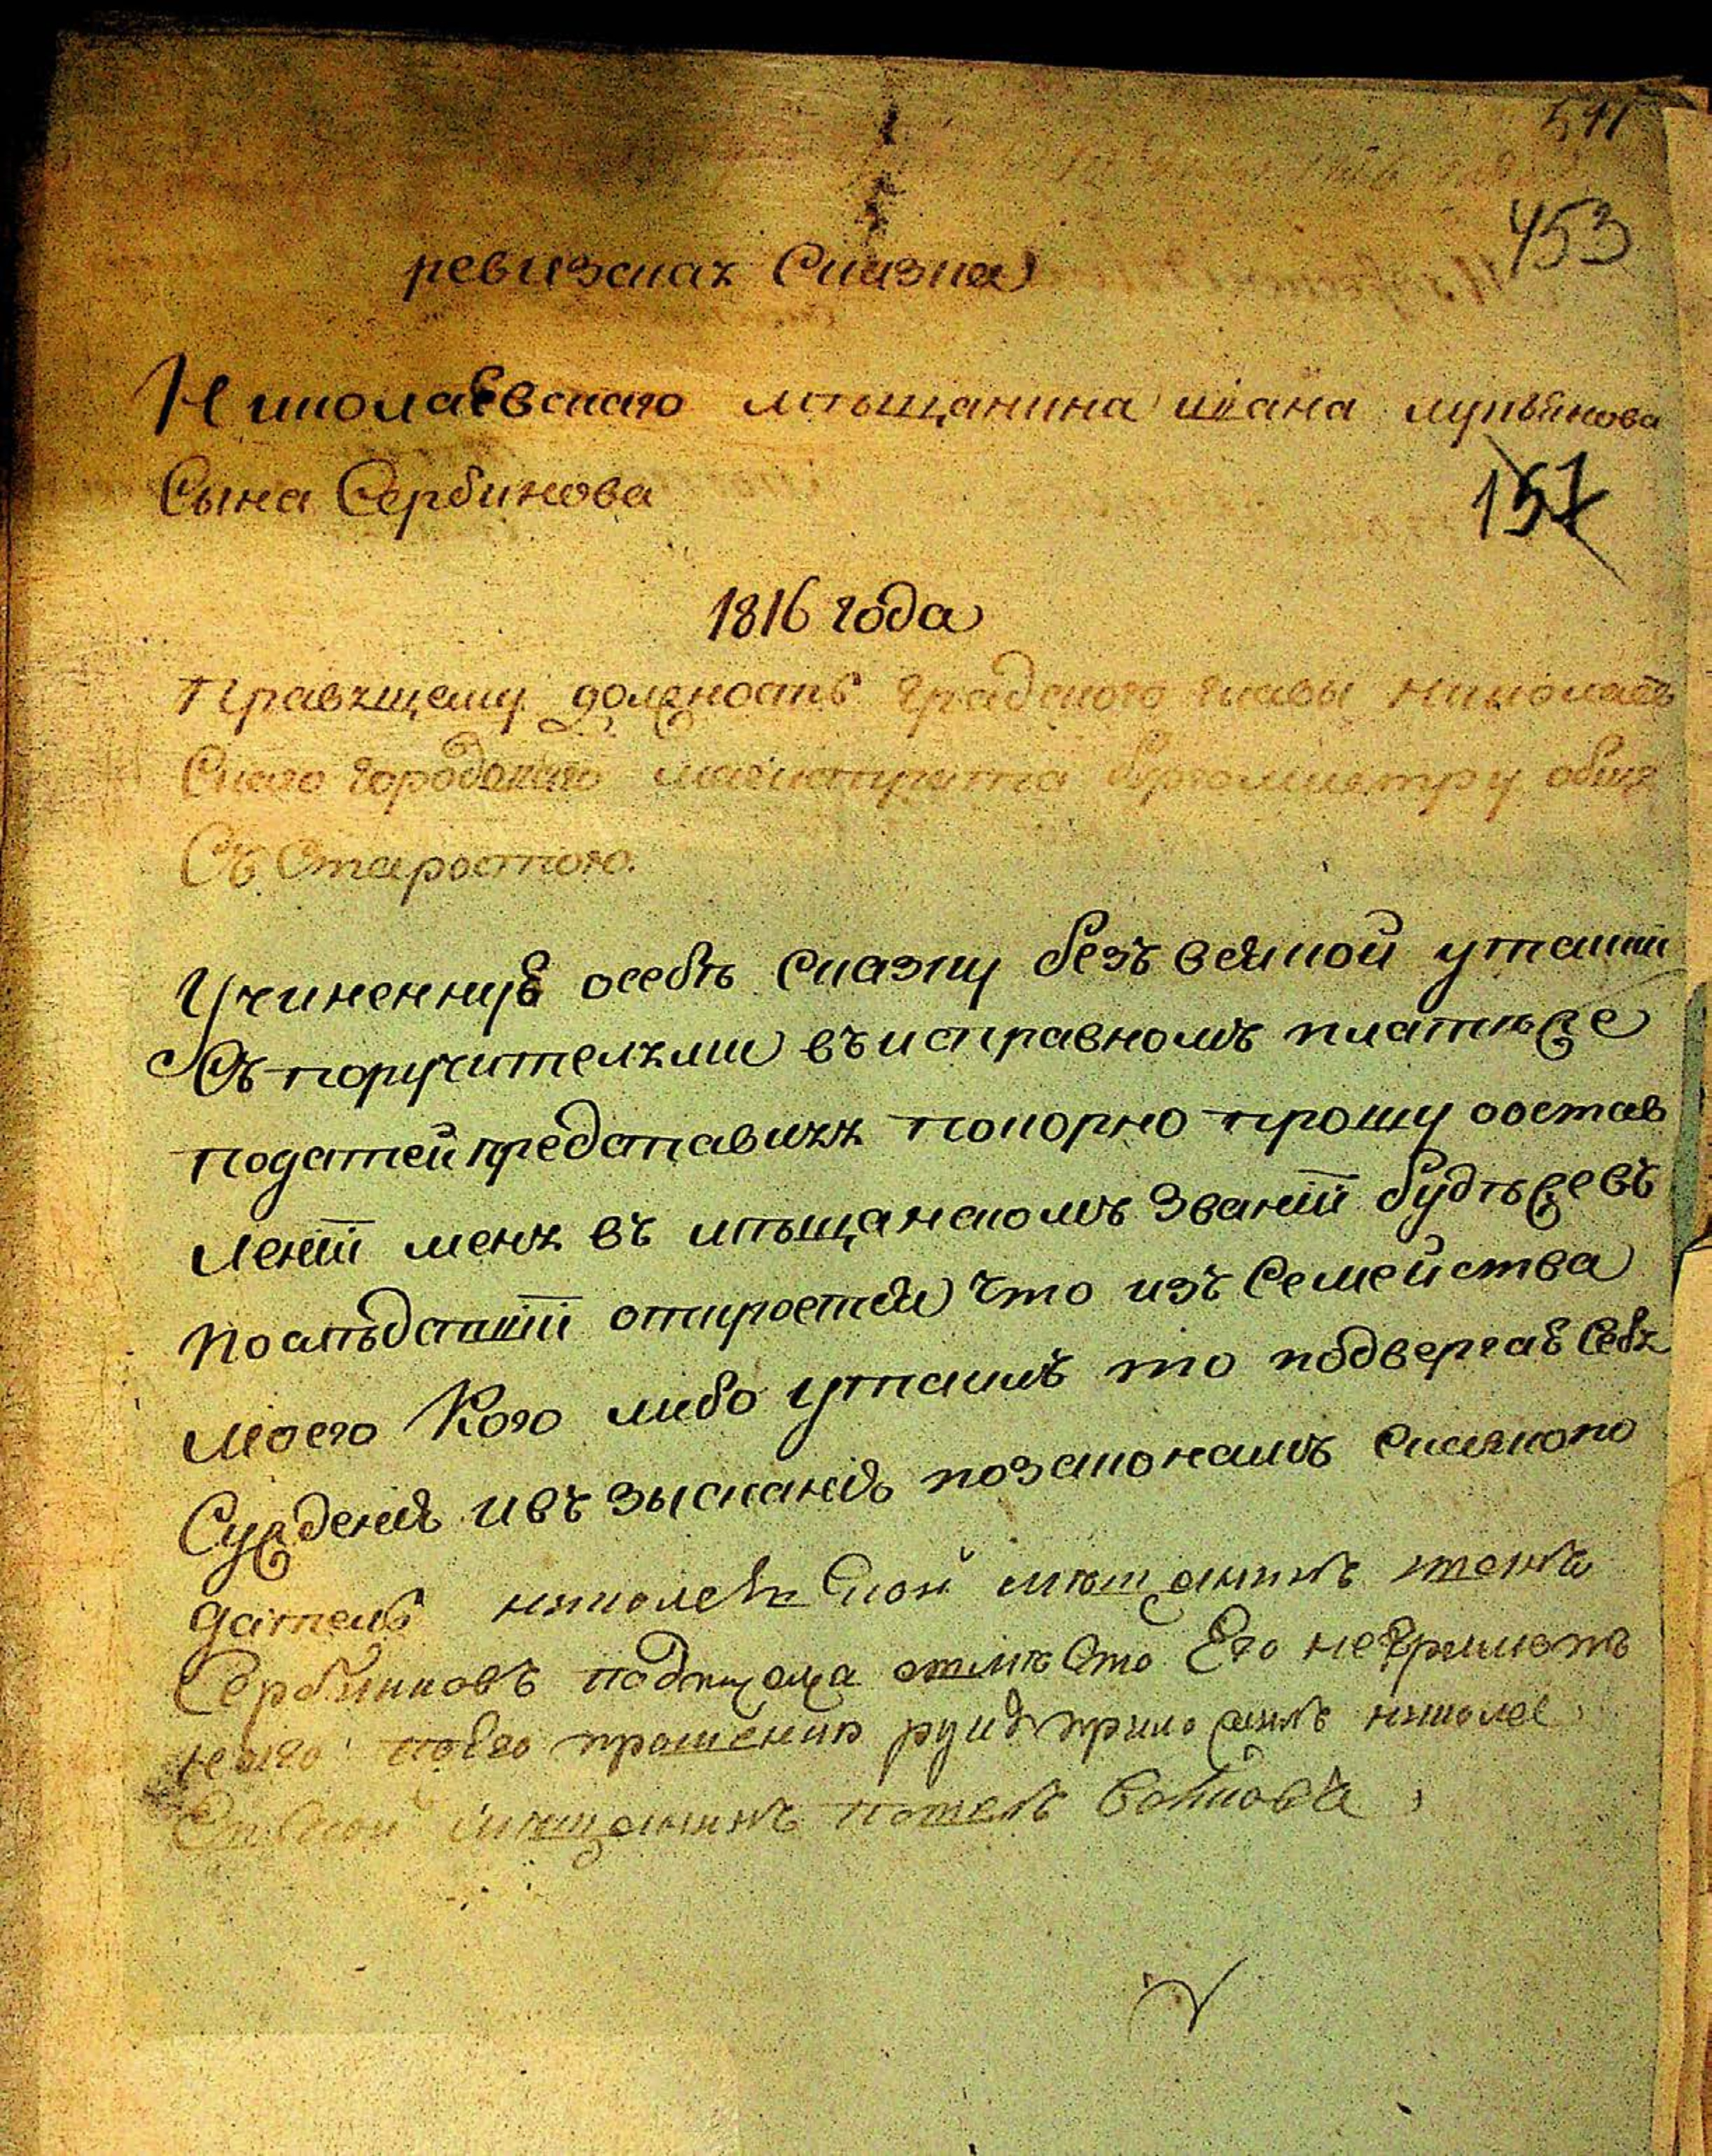 541
453
ревизская Сказка
Николаевскаго мѣщанина ивана лукьянова
Сына Сербинова
151
1816 года
Правящему должность градского главы николаев
Скаго городского магистрата бургомистру обще
Съ Старостою.
Учиненную осебѣ Сказку безъ всякой утайки
Съ поручителями въисправномъ платеже
податей представляя покорно прошу оостав
лениї меня въ мѣщанскомъ званиї будьже въ
послѣдствиї откроется что изъ Семейства
моего Кого либо утаилъ то подвергаю Себя
Сужденію ивъ зысканію позаконамъ Сказкопо
датель николаевской мѣщанинъ
Сербиновъ подписуюся Его неграмот
наго поего прошению руку приложилъ николае
вской мѣщанинъ